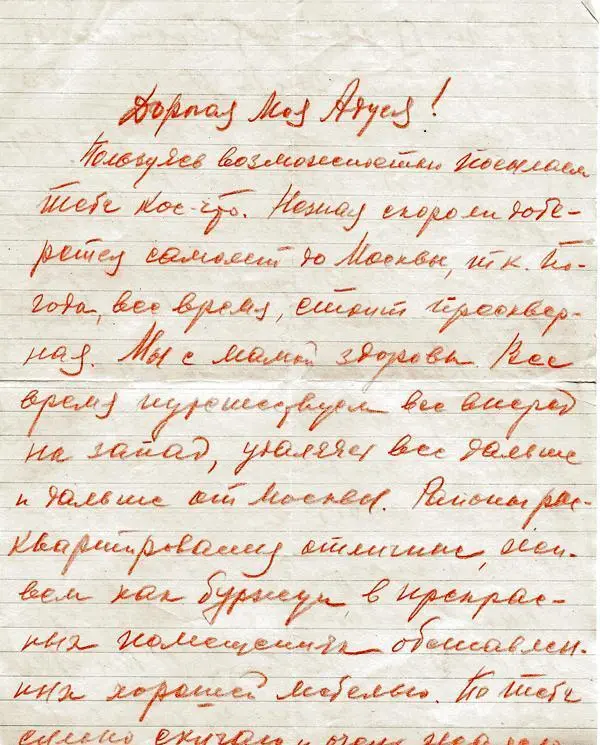 Дорогая Моя Адуся!
Пользуясь возможностью посылаем
тебе кое-что. Незная скоро ли добе-
рется самолет до Москвы, т.к. по-
года, все время, стоит пресквер-
ная. Мы с мамой здоровы. Все
время путешествуем все вперед
на запад, удаляясь все дальше
и дальше от Москвы. Районы рас-
квартирования отличные, жи-
вем как буржуи, в прекрас-
ных помещениях обставлен-
ных хорошей мебелью. По тебе
сильно скучаю и очень